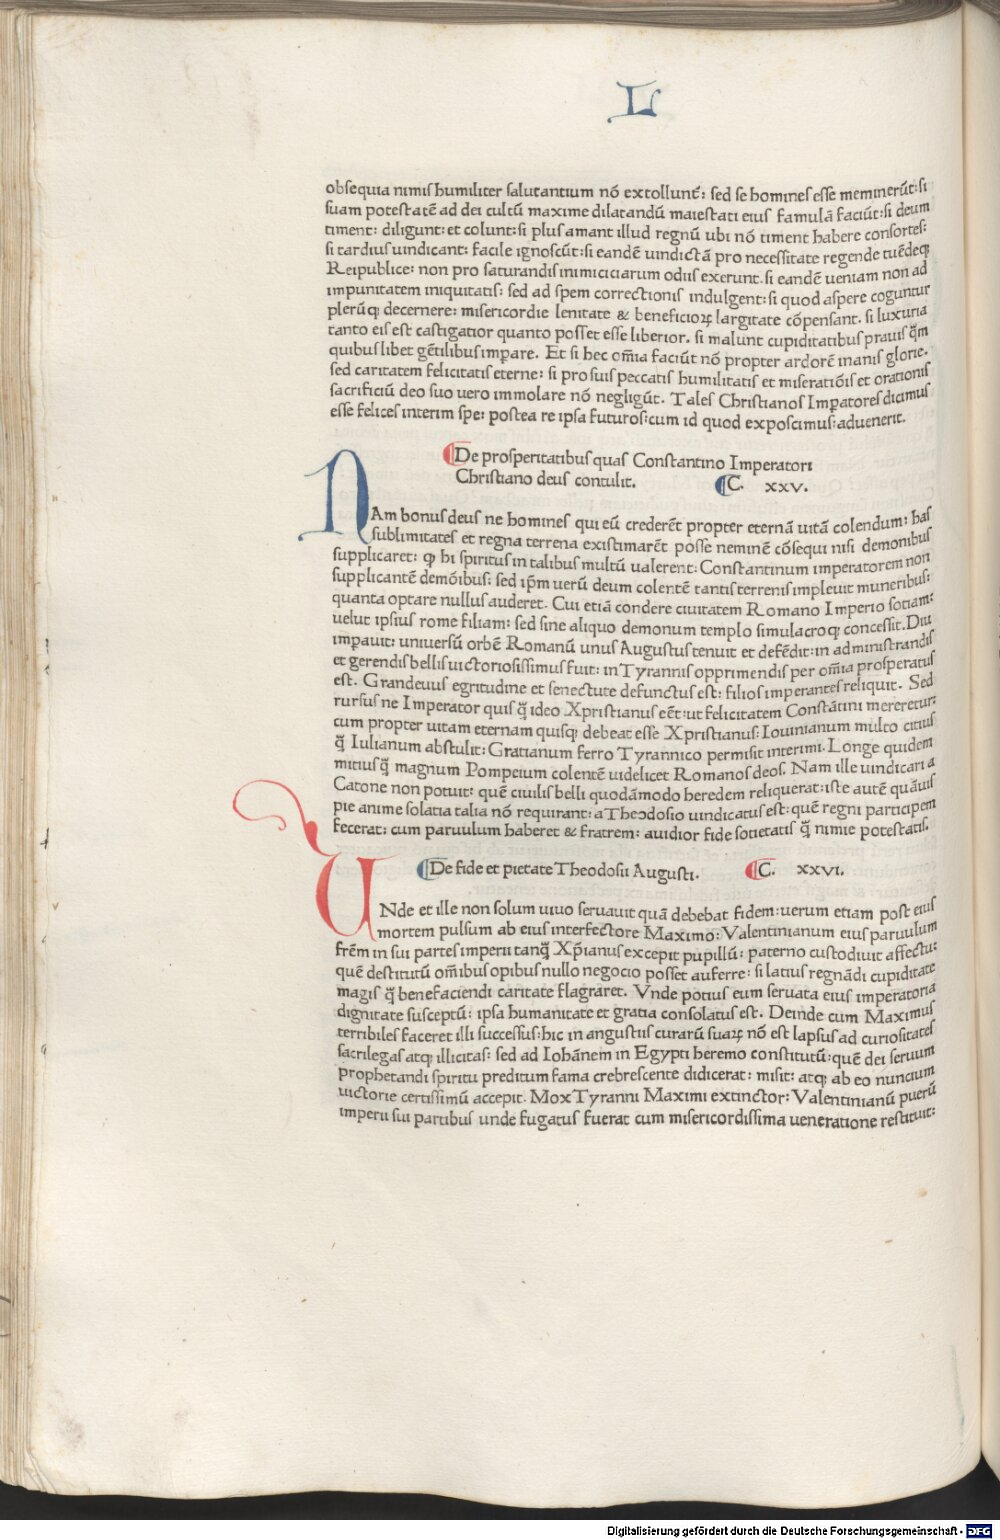 L
obsequia nimis humiliter salutantium nō extollunt̄: sed se homines esse meminerūt: si
suam potestatē ad dei cultū maxime dilatandū maiestati eius famulā faciūt: si deum
timent: diligunt: et colunt: si plus amant illud regnū ubi nō timent habere consortes:
si tardius uindicant: facile ignoscūt: si eandē uindictā pro necessitate regende tuēdeqꝫ
Reipublice: non pro saturandis inimiciciarum odiis exerunt. si eandē ueniam non ad
impunitatem iniquitatis: sed ad spem correctionis indulgent: si quod aspere coguntur
plerūqꝫ decernere: misericordie lenitate & beneficioꝝ largitate cōpensant. si luxuria
tanto eis est castigatior quanto posset esse liberior. si malunt cupiditatibus prauis q̄m
quibuslibet gētilibus imꝑare. Et si hec om̄ia faciūt nō propter ardorē inanis glorie.
sed caritatem felicitatis eterne: si pro suis peccatis humilitatis et miseratiōis et orationis
sacrificiū deo suo uero immolare nō negligūt. Tales Christianos Imꝑatores dicimus
esse felices interim spe: postea re ipsa futuros: cum id quod exposcimus: aduenerit.
De prosperitatibus quas Constantino Imperatori
Christiano deus contulit. C. xxv.
NAm bonus deus ne homines qui eū crederēt propter eternā uitā colendum: has
sublimitates et regna terrena existimarēt posse neminē cōsequi nisi demonibus
supplicaret: qꝫ hi spiritus in talibus multū ualerent: Constantinum imperatorem non
supplicantē demōibus: sed ip̄m uerū deum colentē tantis terrenis impleuit muneribus:
quanta optare nullus auderet. Cui etiā condere ciuitatem Romano Imperio sotiam:
uelut ipsius rome filiam: sed sine aliquo demonum templo simulacroqꝫ concessit. Diu
imꝑauit: uniuersū orbē Romanū unus Augustus tenuit et defēdit: in administrandis
et gerendis bellis uictoriosissimus fuit: in Tyrannis opprimendis per om̄ia prosperatus
est. Grandeuus egritudine et senectute defunctus est: filios imperantes reliquit. Sed
rursus ne Imperator quisq̄ ideo Xpristianus eēt: ut felicitatem Constātini mereretur:
cum propter uitam eternam quisqꝫ debeat esse Xpristianus: Iouinianum multo citius
q̄ Iulianum abstulit: Gratianum ferro Tyrannico permisit interimi. Longe quidem
mitius q̄ magnum Pompeium colentē uidelicet Romanos deos. Nam ille uindicari a
Catone non potuit: quē ciuilis belli quodāmodo heredem reliquerat: iste autē quāuis
pie anime solatia talia nō requirant: a Theodosio uindicatus est: quē regni participem
fecerat: cum paruulum haberet & fratrem: auidior fide sotietatis q̄ nimie potestatis.
De fide et pietate Theodosii Augusti. C. xxvi.
UNde et ille non solum uiuo seruauit quā debebat fidem: uerum etiam post eius
mortem pulsum ab eius interfectore Maximo: Valentinianum eius paruulum
fr̄em in sui partes imperii tanq̄ Xp̄ianus excepit pupillū: paterno custodiuit affectu:
quē destitutū om̄ibus opibus nullo negocio posset auferre: si latius regnādi cupiditate
magis q̄ benefaciendi caritate flagraret. Vnde potius eum seruata eius imperatoria
dignitate susceptū: ipsa humanitate et gratia consolatus est. Deinde cum Maximus
terribiles faceret illi successus: hic in angustiis curarū suaꝝ nō est lapsus ad curiositates
sacrilegas atqꝫ illicitas: sed ad Iohānem in Egypti heremo constitutū: quē dei seruum
prophetandi spiritu preditum fama crebrescente didicerat: misit: atqꝫ ab eo nuncium
uictorie certissimū accepit. Mox Tyranni Maximi extinctor: Valentinianū puerū
imperii sui partibus unde fugatus fuerat cum misericordissima ueneratione restituit:
Digitalisierung gefördert durch die Deutsche Forschungsgemeinschaft - DFG